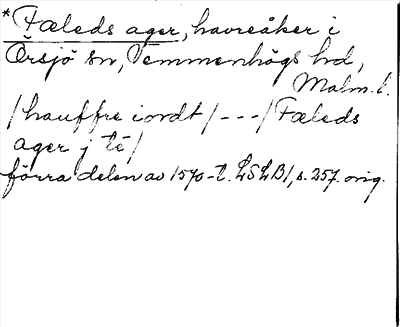 *Fæleds ager, havreåker i
Örsjö sn, Vemmenhögs hd,
Malm. l.
/hauffre iordt/---/Fæleds
ager j te/
förra delen av 1570-t. LSLB1, s. 257. orig.